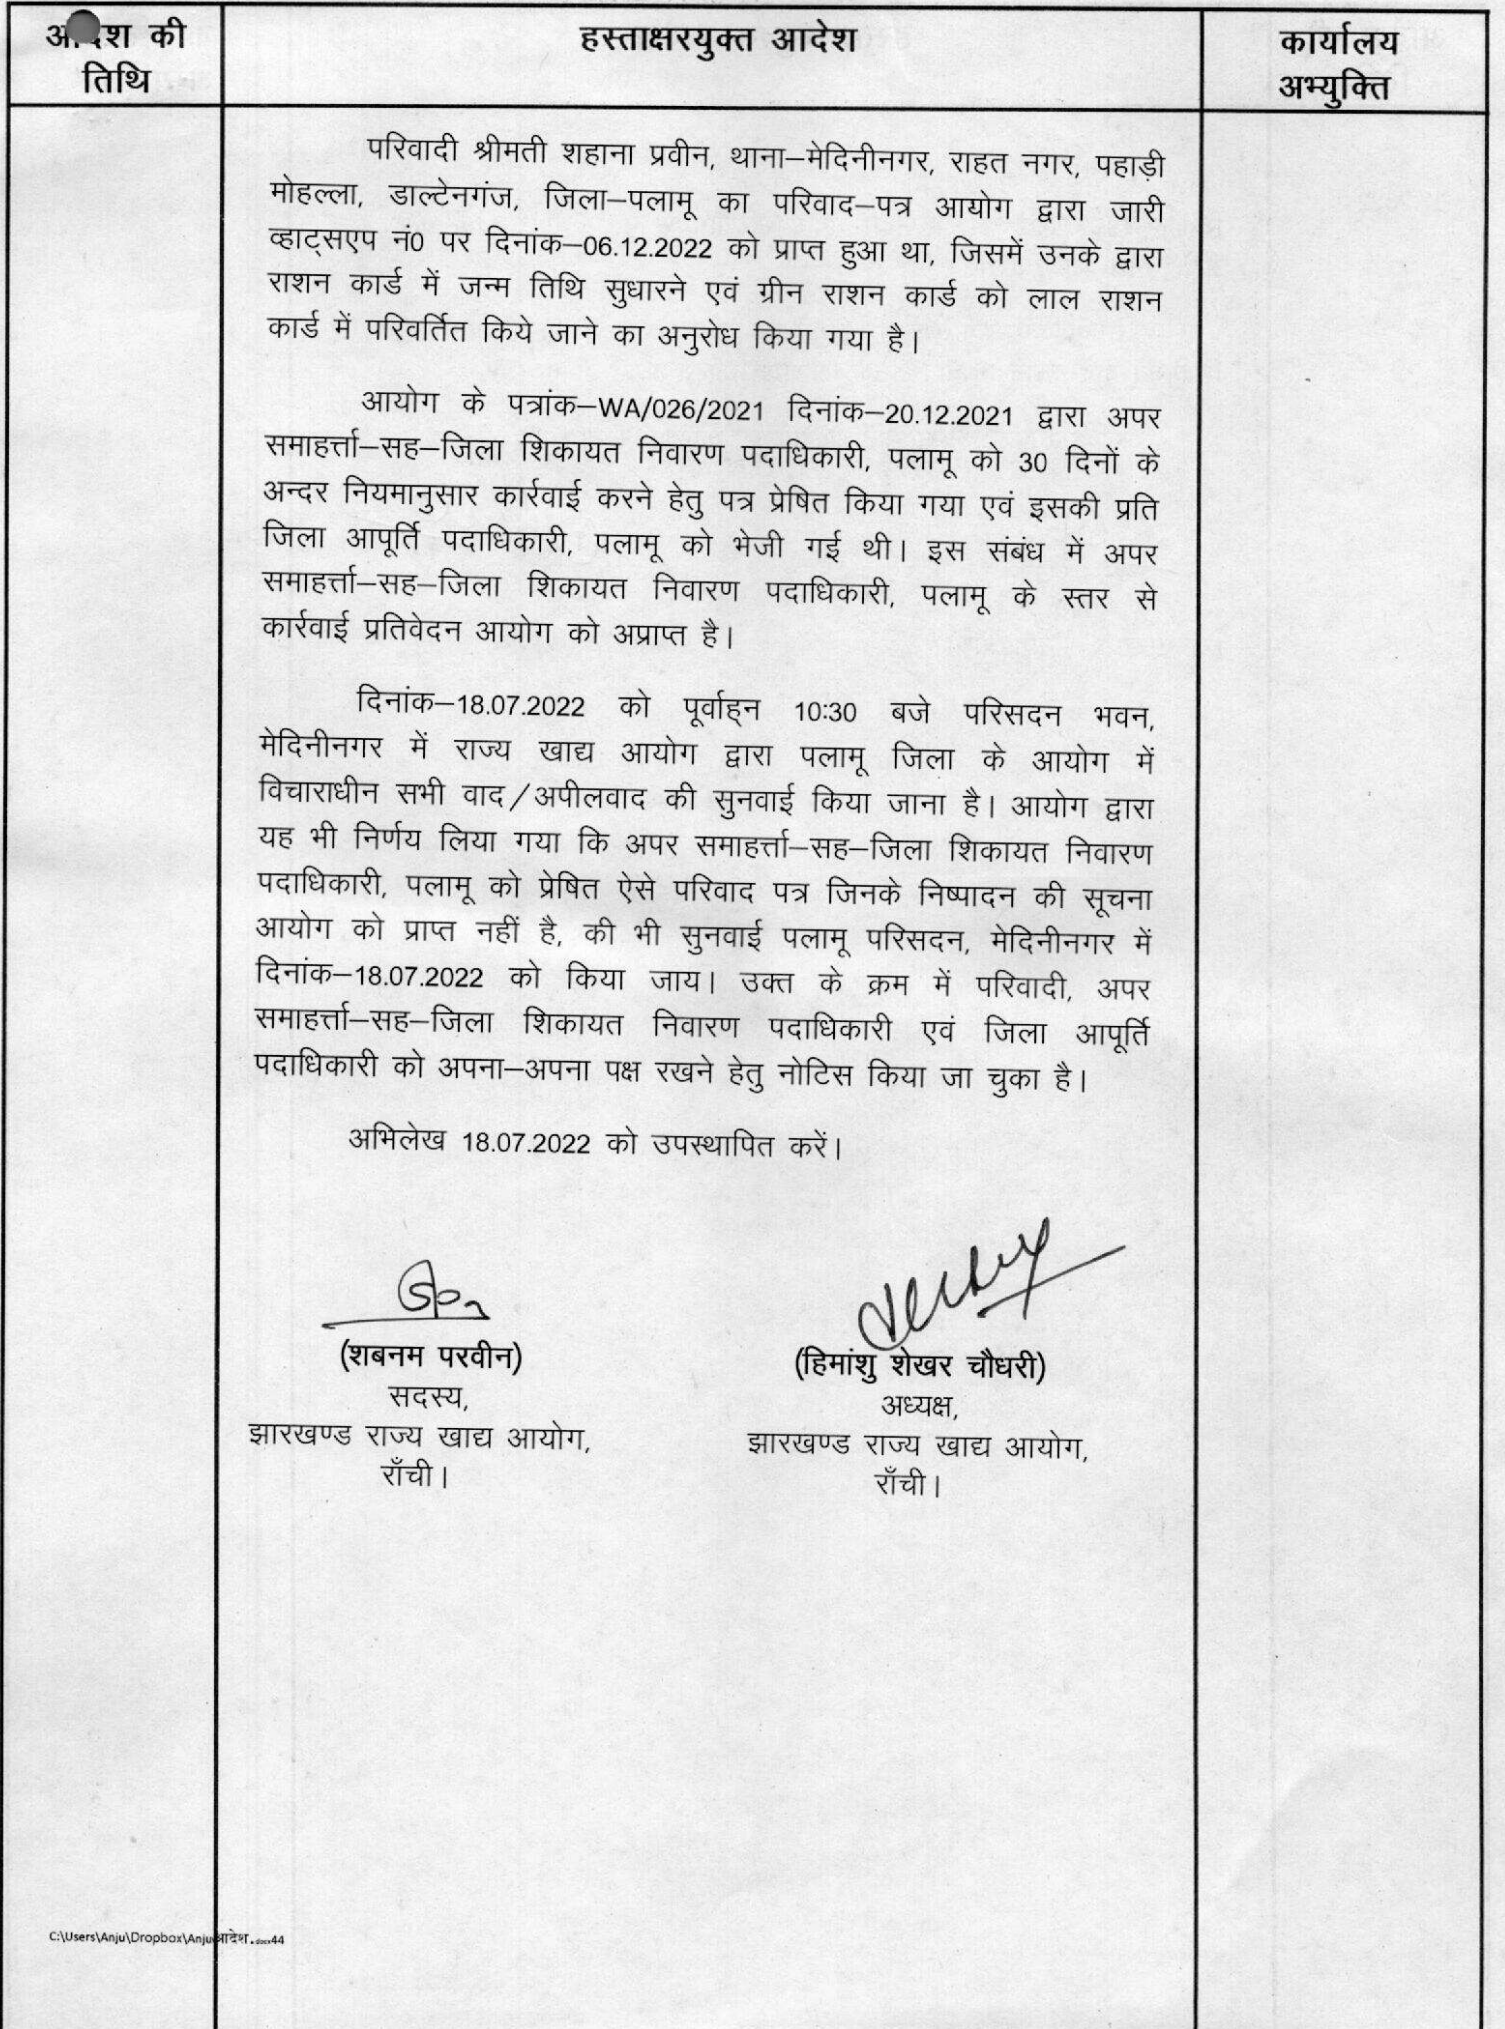 आदेश की
तिथि
हस्ताक्षरयुक्त आदेश
कार्यालय
अभ्युक्ति
परिवादी श्रीमती शहाना प्रवीन, थाना–मेदिनीनगर, राहत नगर, पहाड़ी
मोहल्ला, डाल्टेनगंज, जिला–पलामू का परिवाद–पत्र आयोग द्वारा जारी
व्हाट्सएप नं0 पर दिनांक–06.12.2022 को प्राप्त हुआ था, जिसमें उनके द्वारा
राशन कार्ड में जन्म तिथि सुधारने एवं ग्रीन राशन कार्ड को लाल राशन
कार्ड में परिवर्तित किये जाने का अनुरोध किया गया है।
आयोग के पत्रांक–WA/026/2021 दिनांक–20.12.2021 द्वारा अपर
समाहर्त्ता–सह–जिला शिकायत निवारण पदाधिकारी, पलामू को 30 दिनों के
अन्दर नियमानुसार कार्रवाई करने हेतु पत्र प्रेषित किया गया एवं इसकी प्रति
जिला आपूर्ति पदाधिकारी, पलामू को भेजी गई थी। इस संबंध में अपर
समाहर्त्ता–सह–जिला शिकायत निवारण पदाधिकारी, पलामू के स्तर से
कार्रवाई प्रतिवेदन आयोग को अप्राप्त है।
दिनांक–18.07.2022 को पूर्वाह्न 10:30 बजे परिसदन भवन,
मेदिनीनगर में राज्य खाद्य आयोग द्वारा पलामू जिला के आयोग में
विचाराधीन सभी वाद/अपीलवाद की सुनवाई किया जाना है। आयोग द्वारा
यह भी निर्णय लिया गया कि अपर समाहर्त्ता–सह–जिला शिकायत निवारण
पदाधिकारी, पलामू को प्रेषित ऐसे परिवाद पत्र जिनके निष्पादन की सूचना
आयोग को प्राप्त नहीं है, की भी सुनवाई पलामू परिसदन, मेदिनीनगर में
दिनांक–18.07.2022 को किया जाय। उक्त के क्रम में परिवादी, अपर
समाहर्त्ता–सह–जिला शिकायत निवारण पदाधिकारी एवं जिला आपूर्ति
पदाधिकारी को अपना–अपना पक्ष रखने हेतु नोटिस किया जा चुका है।
अभिलेख 18.07.2022 को उपस्थापित करें।
(शबनम परवीन)
सदस्य,
झारखण्ड राज्य खाद्य आयोग,
राँची।
(हिमांशु शेखर चौधरी)
अध्यक्ष,
झारखण्ड राज्य खाद्य आयोग,
राँची।
C:\Users\Anju\Dropbox\Anju\आदेश.docx44